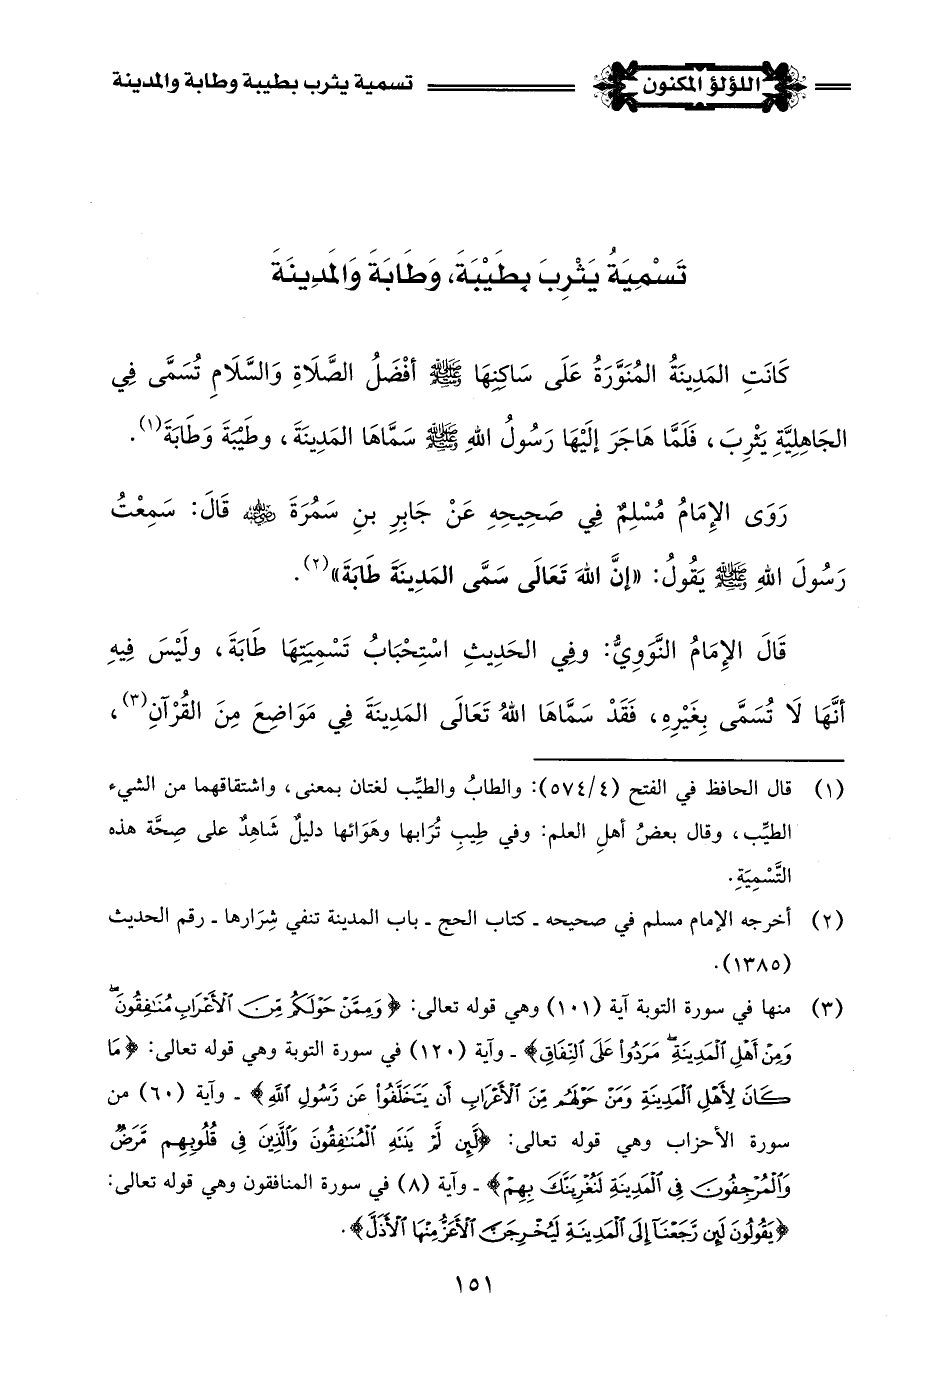 اللؤلؤ المكنون
تسمية يثرب بطيبة وطابة والمدينة
تَسْمِيَةُ يَثْرِبَ بِطَيْبَةَ، وَطَابَةَ وَالمَدِينَةَ
كَانَتِ المَدِينَةُ المُنَوَّرَةُ عَلَى سَاكِنِهَا ﷺ أَفْضَلُ الصَّلَاةِ وَالسَّلَامِ تُسَمَّى فِي
الجَاهِلِيَّةِ يَثْرِبَ، فَلَمَّا هَاجَرَ إِلَيْهَا رَسُولُ اللهِ ﷺ سَمَّاهَا المَدِينَةَ، وطَيْبَةَ وَطَابَةَ(١).
رَوَى الإِمَامُ مُسْلِمٌ فِي صَحِيحِهِ عَنْ جَابِرِ بنِ سَمُرَةَ رضي الله عنه قَالَ: سَمِعْتُ
رَسُولَ اللهِ ﷺ يَقُولُ: «إِنَّ اللهَ تَعَالَى سَمَّى المَدِينَةَ طَابَةَ»(٢).
قَالَ الإِمَامُ النَّوَوِيُّ: وفِي الحَدِيثِ اسْتِحْبَابُ تَسْمِيَتِهَا طَابَةَ، ولَيْسَ فِيهِ
أَنَّهَا لَا تُسَمَّى بِغَيْرِهِ، فَقَدْ سَمَّاهَا اللهُ تَعَالَى المَدِينَةَ فِي مَوَاضِعَ مِنَ القُرْآنِ(٣)،
(١) قال الحافظ في الفتح (٥٧٤/٤): والطابُ والطيِّب لغتان بمعنى، واشتقاقهما من الشيء
الطيِّب، وقال بعضُ أهلِ العلم: وفي طِيبِ تُرابها وهَوَائها دليلٌ شَاهِدٌ على صِحَّة هذه
التَّسْمِيَةِ.
(٢) أخرجه الإمام مسلم في صحيحه ـ كتاب الحج ـ باب المدينة تنفي شِرَارها ـ رقم الحديث
(١٣٨٥).
(٣) منها في سورة التوبة آية (١٠١) وهي قوله تعالى: ﴿وَمِمَّنْ حَوْلَكُم مِّنَ ٱلْأَعْرَابِ مُنَٰفِقُونَۖ
وَمِنْ أَهْلِ ٱلْمَدِينَةِۖ مَرَدُوا۟ عَلَى ٱلنِّفَاقِ﴾ ـ وآية (١٢٠) في سورة التوبة وهي قوله تعالى: ﴿مَا
كَانَ لِأَهْلِ ٱلْمَدِينَةِ وَمَنْ حَوْلَهُم مِّنَ ٱلْأَعْرَابِ أَن يَتَخَلَّفُوا۟ عَن رَّسُولِ ٱللَّهِ﴾ ـ وآية (٦٠) من
سورة الأحزاب وهي قوله تعالى: ﴿لَّئِن لَّمْ يَنتَهِ ٱلْمُنَٰفِقُونَ وَٱلَّذِينَ فِى قُلُوبِهِم مَّرَضٌ
وَٱلْمُرْجِفُونَ فِى ٱلْمَدِينَةِ لَنُغْرِيَنَّكَ بِهِمْ﴾ ـ وآية (٨) في سورة المنافقون وهي قوله تعالى:
﴿يَقُولُونَ لَئِن رَّجَعْنَآ إِلَى ٱلْمَدِينَةِ لَيُخْرِجَنَّ ٱلْأَعَزُّ مِنْهَا ٱلْأَذَلَّ﴾.
١٥١